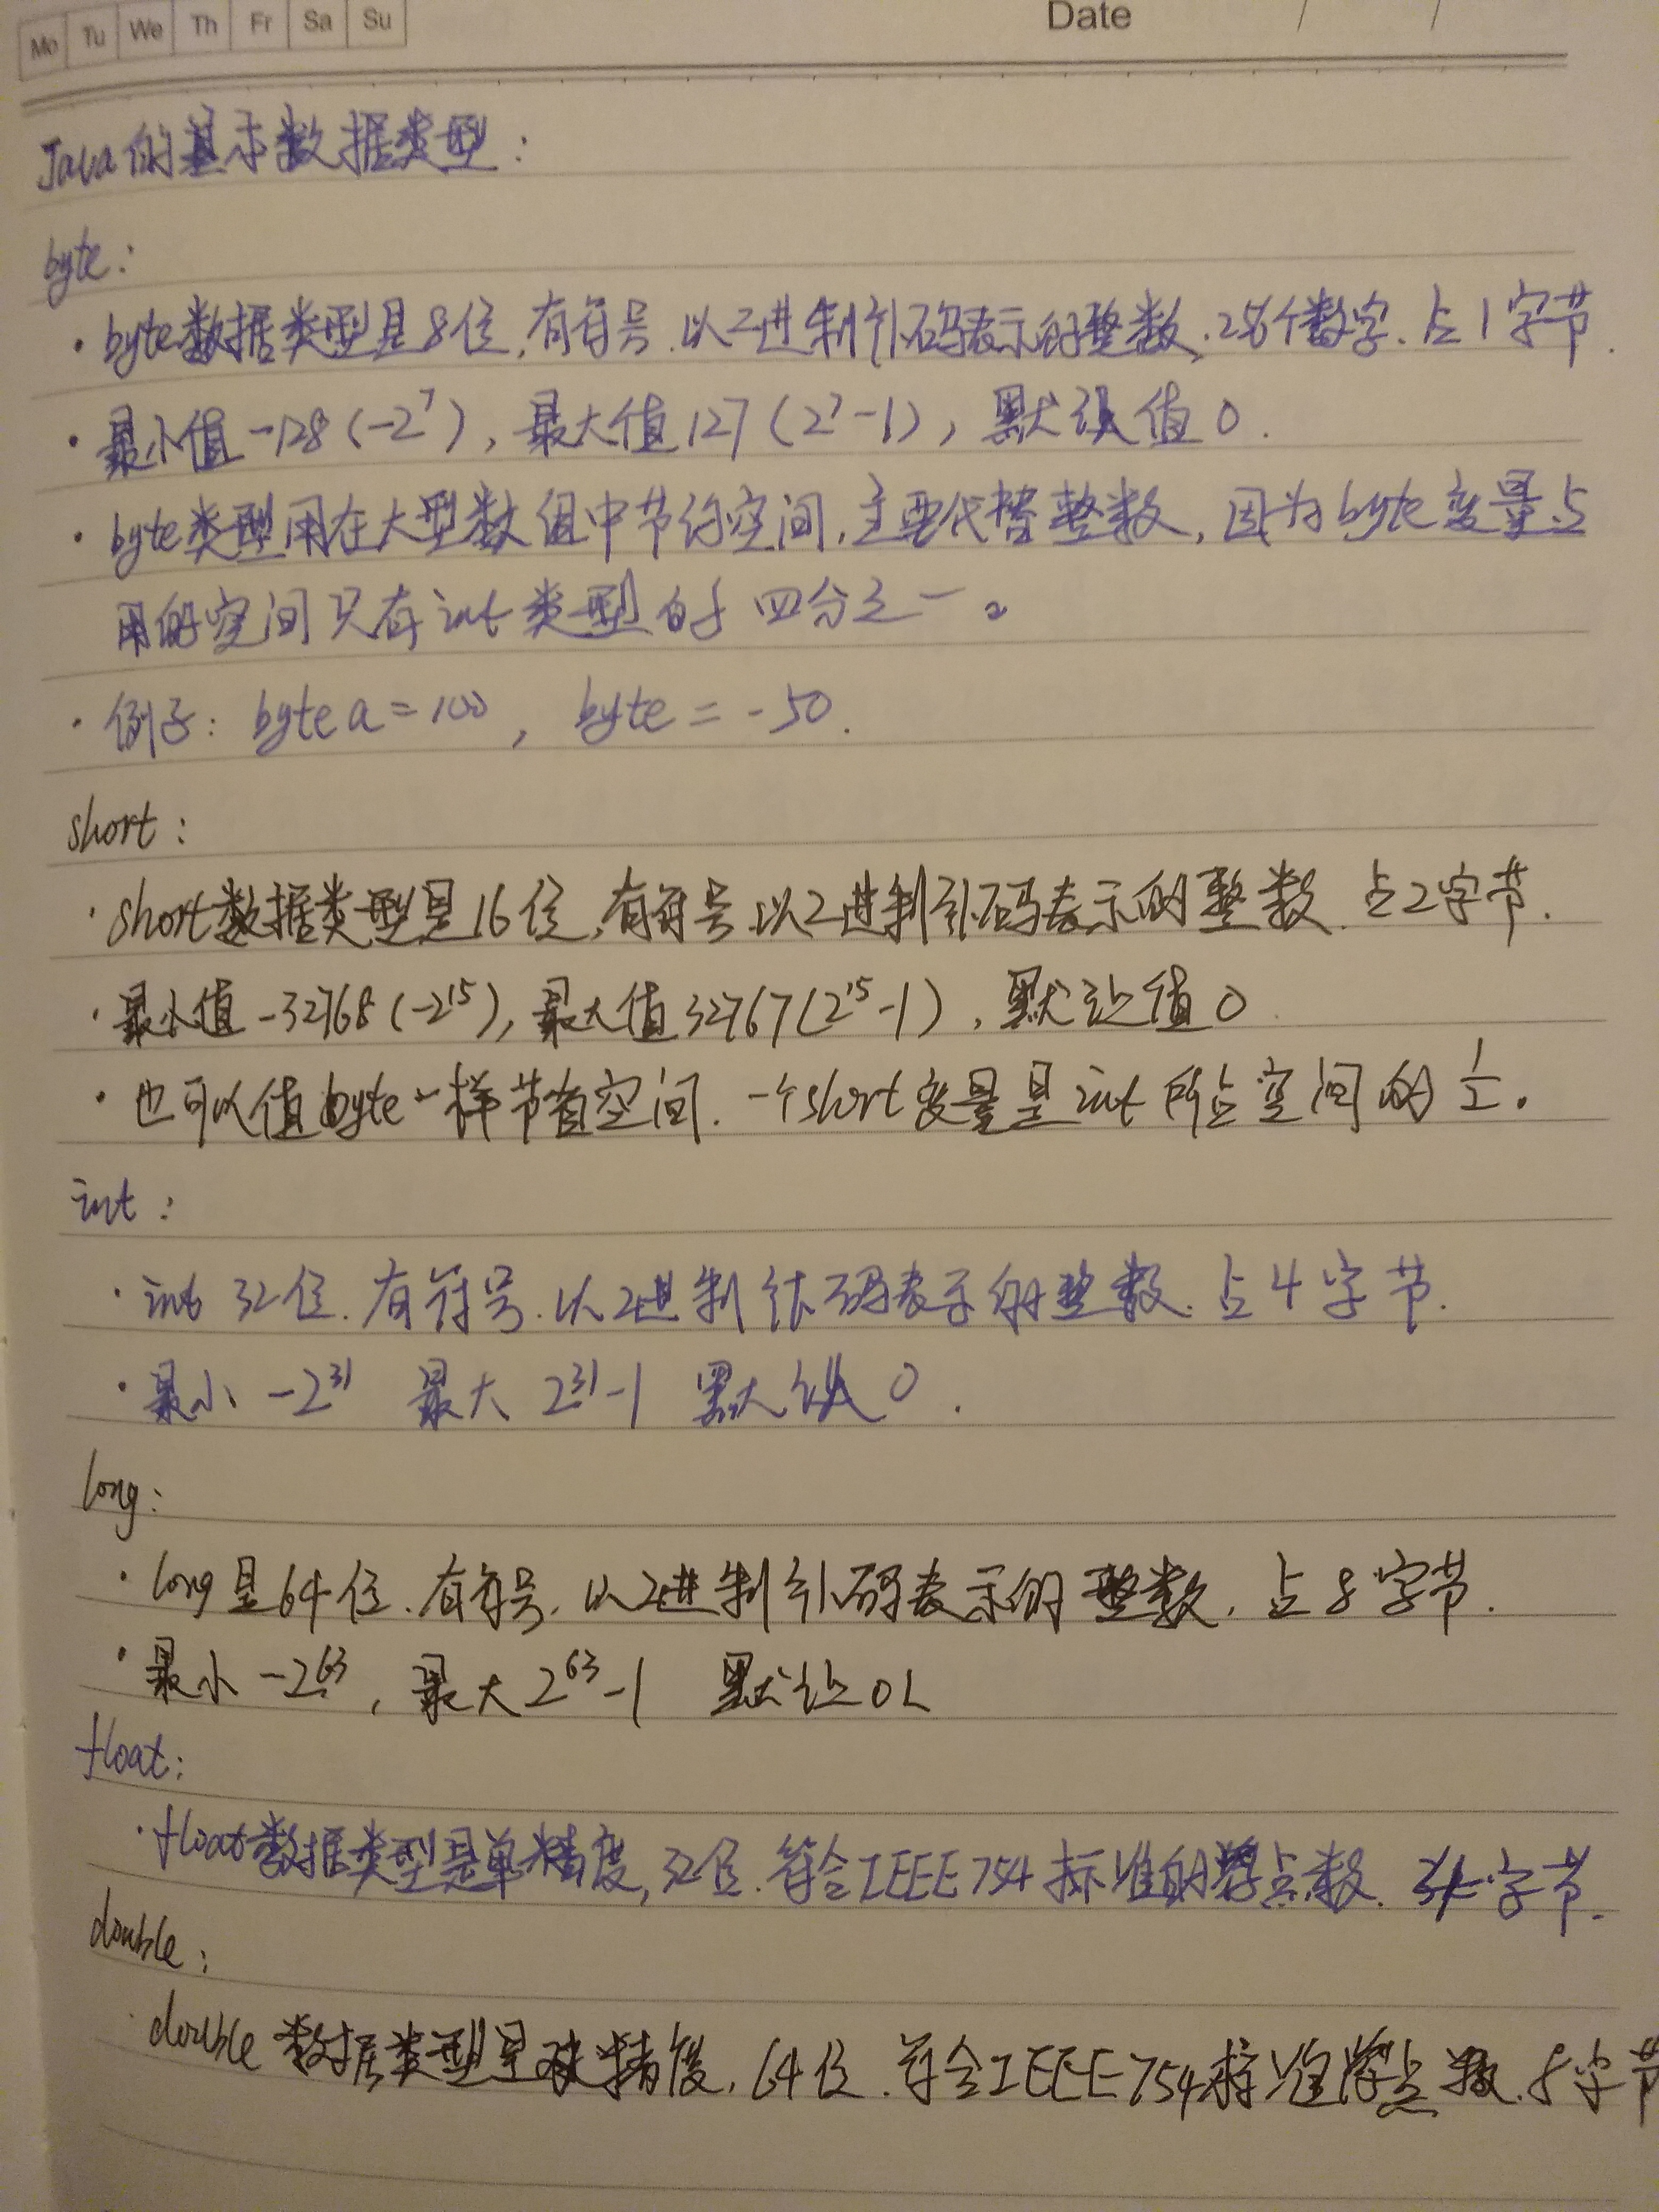 Mo Tu We Th Fr Sa Su Date / /
Java的基本数据类型:
byte:
·byte数据类型是8位,有符号.以2进制补码表示的整数.256个数字.占1字节.
·最小值-128(-2⁷),最大值127(2⁷-1),默认值0.
·byte类型用在大型数组中节约空间,主要代替整数,因为byte变量占
用的空间只有int类型的四分之一。
·例子: byte a=100, byte=-50.
short:
·short数据类型是16位,有符号.以2进制补码表示的整数.占2字节.
·最小值-32768(-2¹⁵),最大值32767(2¹⁵-1),默认值0.
·也可以值byte一样节省空间.一个short变量是int所占空间的1/2。
int:
·int 32位.有符号.以2进制补码表示的整数.占4字节.
·最小 -2³¹ 最大 2³¹-1 默认 0.
long:
·long是64位.有符号.以2进制补码表示的整数.占8字节.
·最小 -2⁶³, 最大2⁶³-1 默认0L
float:
·float数据类型是单精度,32位.符合IEEE754标准的浮点数. 字节.
double:
·double数据类型是双精度,64位.符合IEEE754标准浮点数.8字节